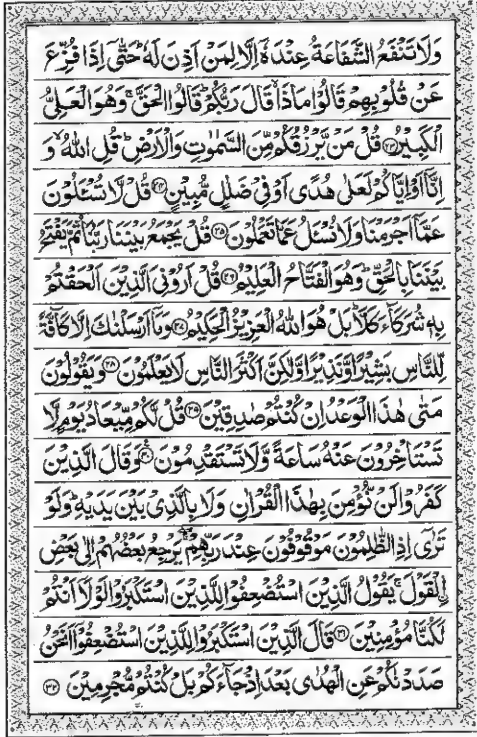 وَلَا تَنْفَعُ الشَّفَاعَةُ عِنْدَهٗۤ اِلَّا لِمَنْ اَذِنَ لَهٗ ؕ حَتّٰۤی اِذَا فُزِّعَ
عَنْ قُلُوْبِهِمْ قَالُوْا مَاذَا ۙ قَالَ رَبُّكُمْ ؕ قَالُوا الْحَقَّ ۚ وَهُوَ الْعَلِیُّ
الْكَبِیْرُ ﴿۲۳﴾ قُلْ مَنْ یَّرْزُقُكُمْ مِّنَ السَّمٰوٰتِ وَالْاَرْضِ ؕ قُلِ اللّٰهُ ۙ وَ
اِنَّاۤ اَوْ اِیَّاكُمْ لَعَلٰی هُدًی اَوْ فِیْ ضَلٰلٍ مُّبِیْنٍ ﴿۲۴﴾ قُلْ لَّا تُسْـَٔلُوْنَ
عَمَّاۤ اَجْرَمْنَا وَلَا نُسْـَٔلُ عَمَّا تَعْمَلُوْنَ ﴿۲۵﴾ قُلْ یَجْمَعُ بَیْنَنَا رَبُّنَا ثُمَّ یَفْتَحُ
بَیْنَنَا بِالْحَقِّ ؕ وَهُوَ الْفَتَّاحُ الْعَلِیْمُ ﴿۲۶﴾ قُلْ اَرُوْنِیَ الَّذِیْنَ اَلْحَقْتُمْ
بِهٖ شُرَكَآءَ كَلَّا ؕ بَلْ هُوَ اللّٰهُ الْعَزِیْزُ الْحَكِیْمُ ﴿۲۷﴾ وَمَاۤ اَرْسَلْنٰكَ اِلَّا كَآفَّةً
لِّلنَّاسِ بَشِیْرًا وَّنَذِیْرًا وَّلٰكِنَّ اَكْثَرَ النَّاسِ لَا یَعْلَمُوْنَ ﴿۲۸﴾ وَیَقُوْلُوْنَ
مَتٰی هٰذَا الْوَعْدُ اِنْ كُنْتُمْ صٰدِقِیْنَ ﴿۲۹﴾ قُلْ لَّكُمْ مِّیْعَادُ یَوْمٍ لَّا
تَسْتَاْخِرُوْنَ عَنْهُ سَاعَةً وَّلَا تَسْتَقْدِمُوْنَ ﴿۳۰﴾ وَقَالَ الَّذِیْنَ
كَفَرُوْا لَنْ نُّؤْمِنَ بِهٰذَا الْقُرْاٰنِ وَلَا بِالَّذِیْ بَیْنَ یَدَیْهِ ؕ وَلَوْ
تَرٰۤی اِذِ الظّٰلِمُوْنَ مَوْقُوْفُوْنَ عِنْدَ رَبِّهِمْ ۖۚ یَرْجِعُ بَعْضُهُمْ اِلٰی بَعْضِ
ۣالْقَوْلَ ۚ یَقُوْلُ الَّذِیْنَ اسْتُضْعِفُوْا لِلَّذِیْنَ اسْتَكْبَرُوْا لَوْلَاۤ اَنْتُمْ
لَكُنَّا مُؤْمِنِیْنَ ﴿۳۱﴾ قَالَ الَّذِیْنَ اسْتَكْبَرُوْا لِلَّذِیْنَ اسْتُضْعِفُوْۤا اَنَحْنُ
صَدَدْنٰكُمْ عَنِ الْهُدٰی بَعْدَ اِذْ جَآءَكُمْ بَلْ كُنْتُمْ مُّجْرِمِیْنَ ﴿۳۲﴾